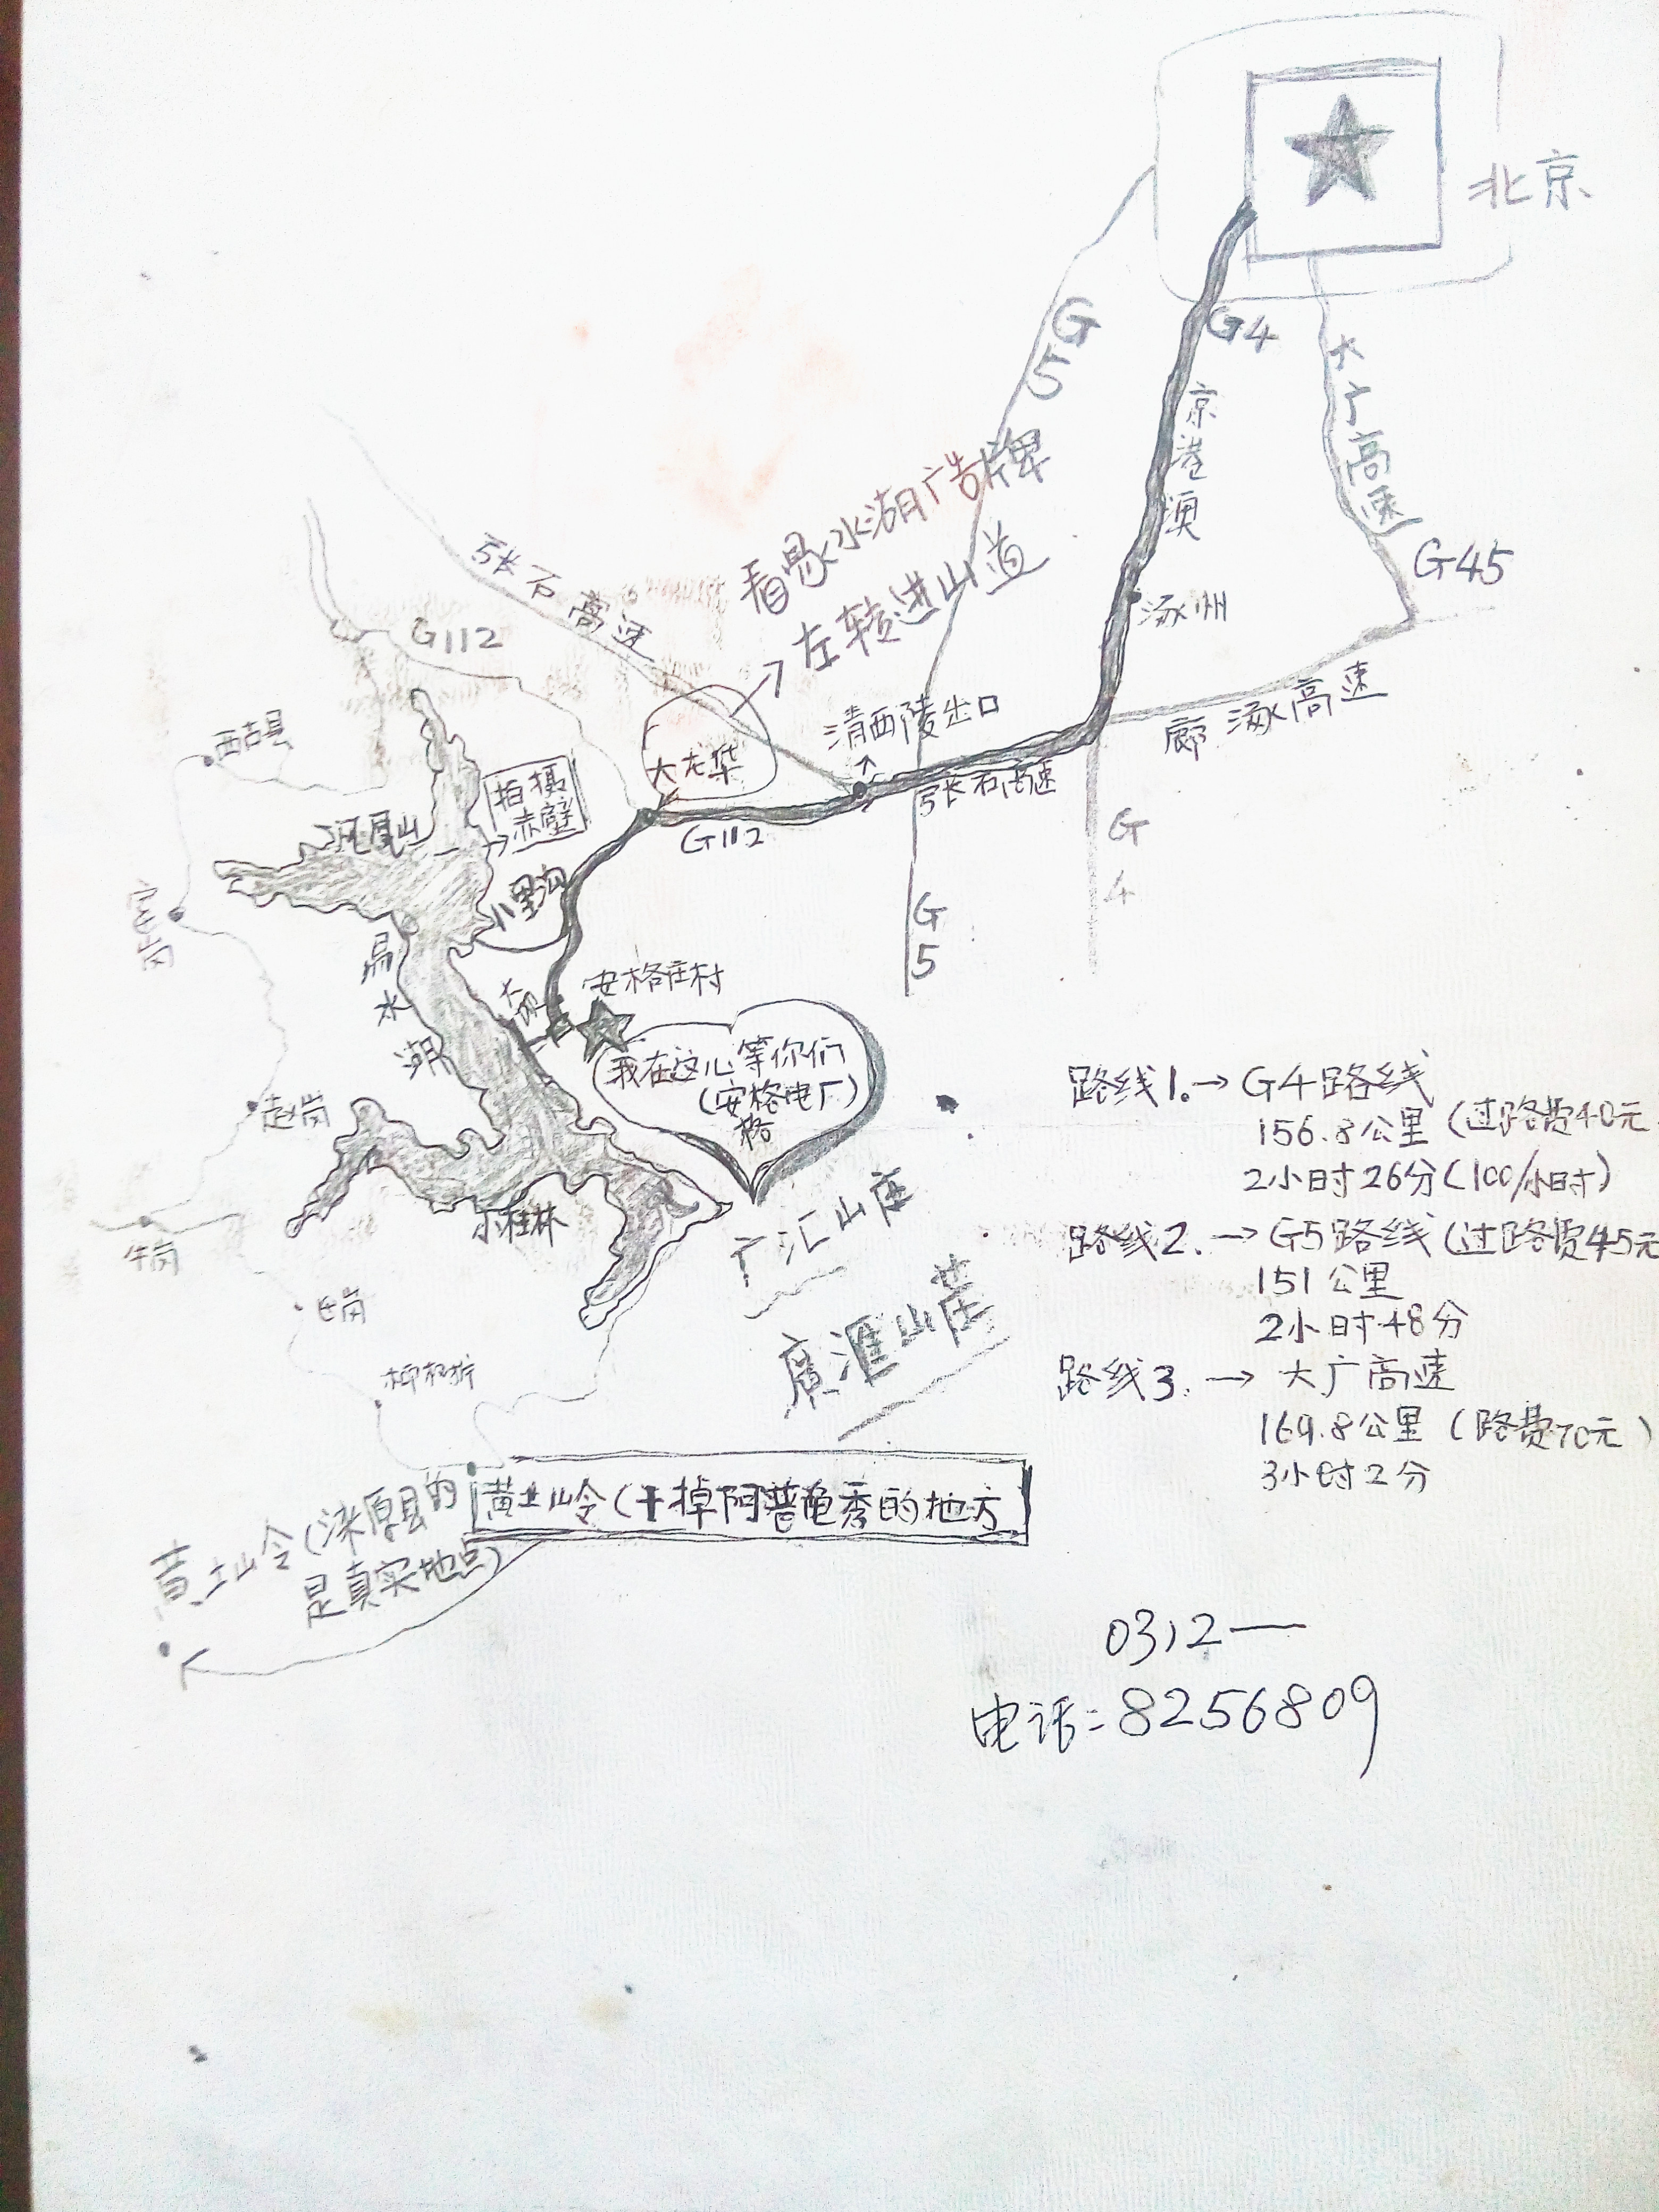 北京
G5
G4
京港澳
大广高速
G45
看易水湖广告牌
左转进山道
张石高速
G112
涿州
廊涿高速
清西陵出口
张石高速
大龙华
G112
G4
G5
西古县
拍摄
赤壁
凤凰山
小里沟
易水湖
大坝
安格庄村
我在这心等你们
(安格电厂)
格
赵岗
牛岗
小桂林
广汇山庄
廣滙山莊
路线1.→G4路线
156.8公里(过路费40元
2小时26分(100/小时)
路线2.→G5路线(过路费45元
151公里
2小时48分
路线3.→大广高速
169.8公里(路费70元)
3小时2分
黄土岭(干掉阿普龟秀的地方
黄土岭(涞原县的
是真实地点)
0312—
电话:8256809